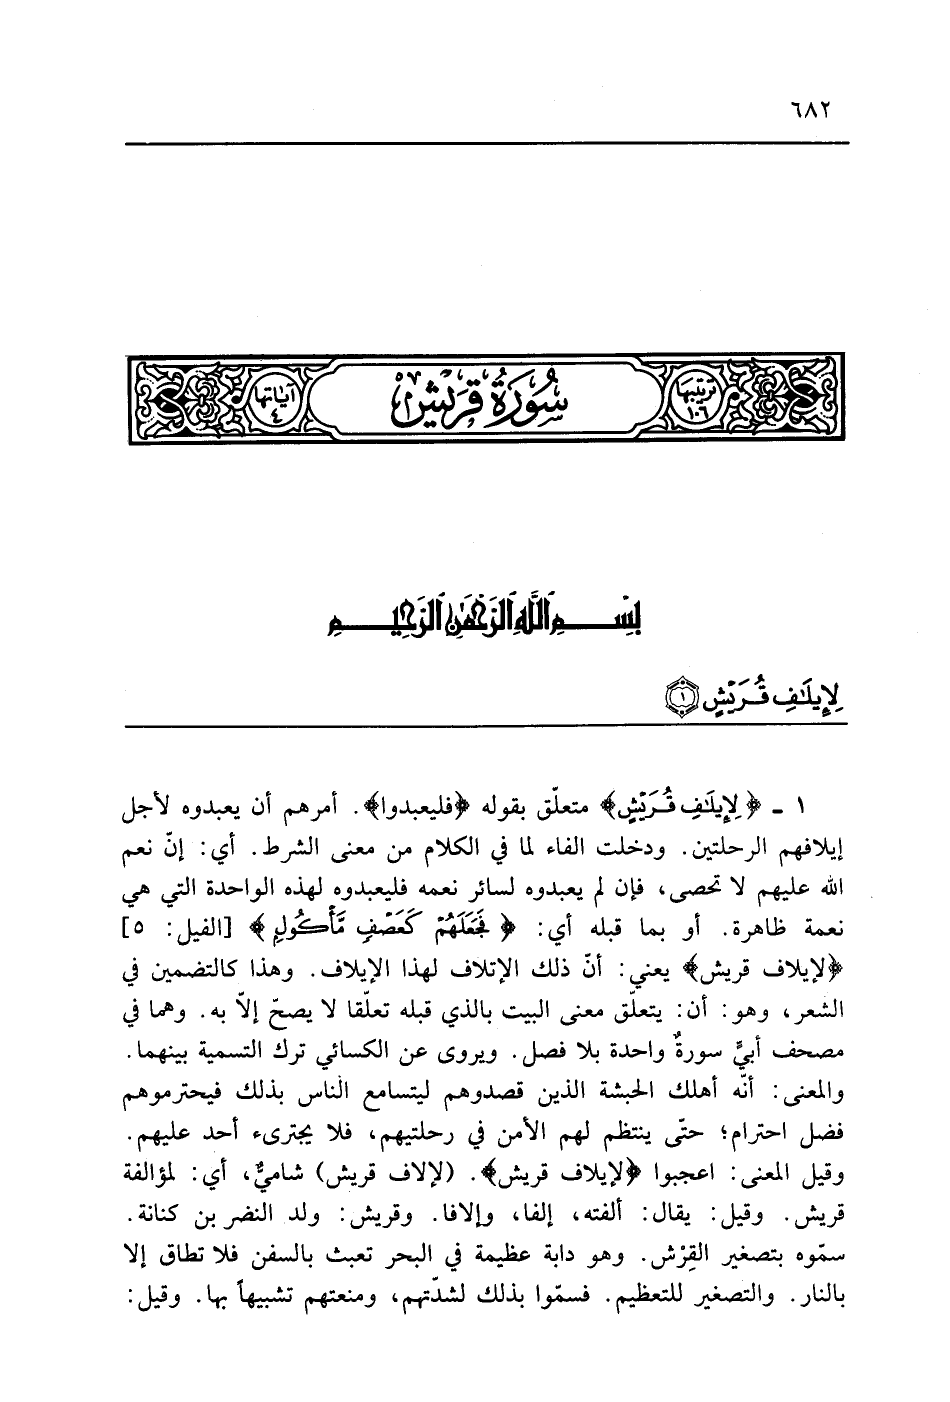 ٦٨٢
ترتيبها ١٠٦ سُورَةُ قُرَيْشٍ آياتها ٤
بِسْمِ اللَّهِ الرَّحْمَٰنِ الرَّحِيمِ
لِإِيلَٰفِ قُرَيْشٍ ١
١ ـ ﴿لِإِيلَٰفِ قُرَيْشٍ﴾ متعلّق بقوله ﴿فليعبدوا﴾. أمرهم أن يعبدوه لأجل
إيلافهم الرحلتين. ودخلت الفاء لما في الكلام من معنى الشرط. أي: إنّ نعم
الله عليهم لا تحصى، فإن لم يعبدوه لسائر نعمه فليعبدوه لهذه الواحدة التي هي
نعمة ظاهرة. أو بما قبله أي: ﴿فَجَعَلَهُمْ كَعَصْفٍ مَّأْكُولٍ﴾ [الفيل: ٥]
﴿لإيلاف قريش﴾ يعني: أنّ ذلك الإتلاف لهذا الإيلاف. وهذا كالتضمين في
الشعر، وهو: أن: يتعلّق معنى البيت بالذي قبله تعلّقا لا يصحّ إلاّ به. وهما في
مصحف أبيٍّ سورةٌ واحدة بلا فصل. ويروى عن الكسائي ترك التسمية بينهما.
والمعنى: أنّه أهلك الحبشة الذين قصدوهم ليتسامع الناس بذلك فيحترموهم
فضل احترام؛ حتّى ينتظم لهم الأمن في رحلتيهم، فلا يجترىء أحد عليهم.
وقيل المعنى: اعجبوا ﴿لإيلاف قريش﴾. (لإلاف قريش) شاميٌّ، أي: لمؤالفة
قريش. وقيل: يقال: ألفته، إلفا، وإلافا. وقريش: ولد النضر بن كنانة.
سمّوه بتصغير القِرْش. وهو دابة عظيمة في البحر تعبث بالسفن فلا تطاق إلا
بالنار. والتصغير للتعظيم. فسمّوا بذلك لشدّتهم، ومنعتهم تشبيهاً بها. وقيل: